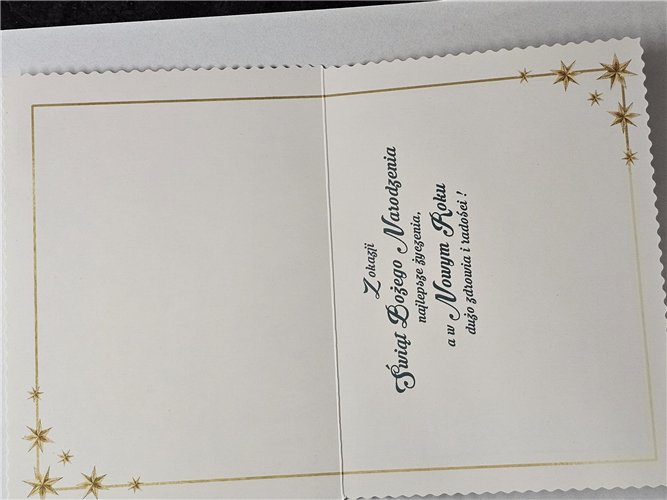 Z okazji
Świąt Bożego Narodzenia
najlepsze życzenia,
a w Nowym Roku
dużo zdrowia i radości !